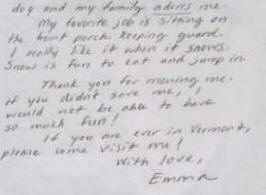 dog and my family adores me.
My favorite job is sitting on
the front porch keeping guard.
I really like it when it snows.
Snow is fun to eat and jump in.
Thank you for rescuing me.
If you didn't save me, I
would not be able to have
so much fun!
If you are ever in Vermont,
please come visit me!
With love,
Emma